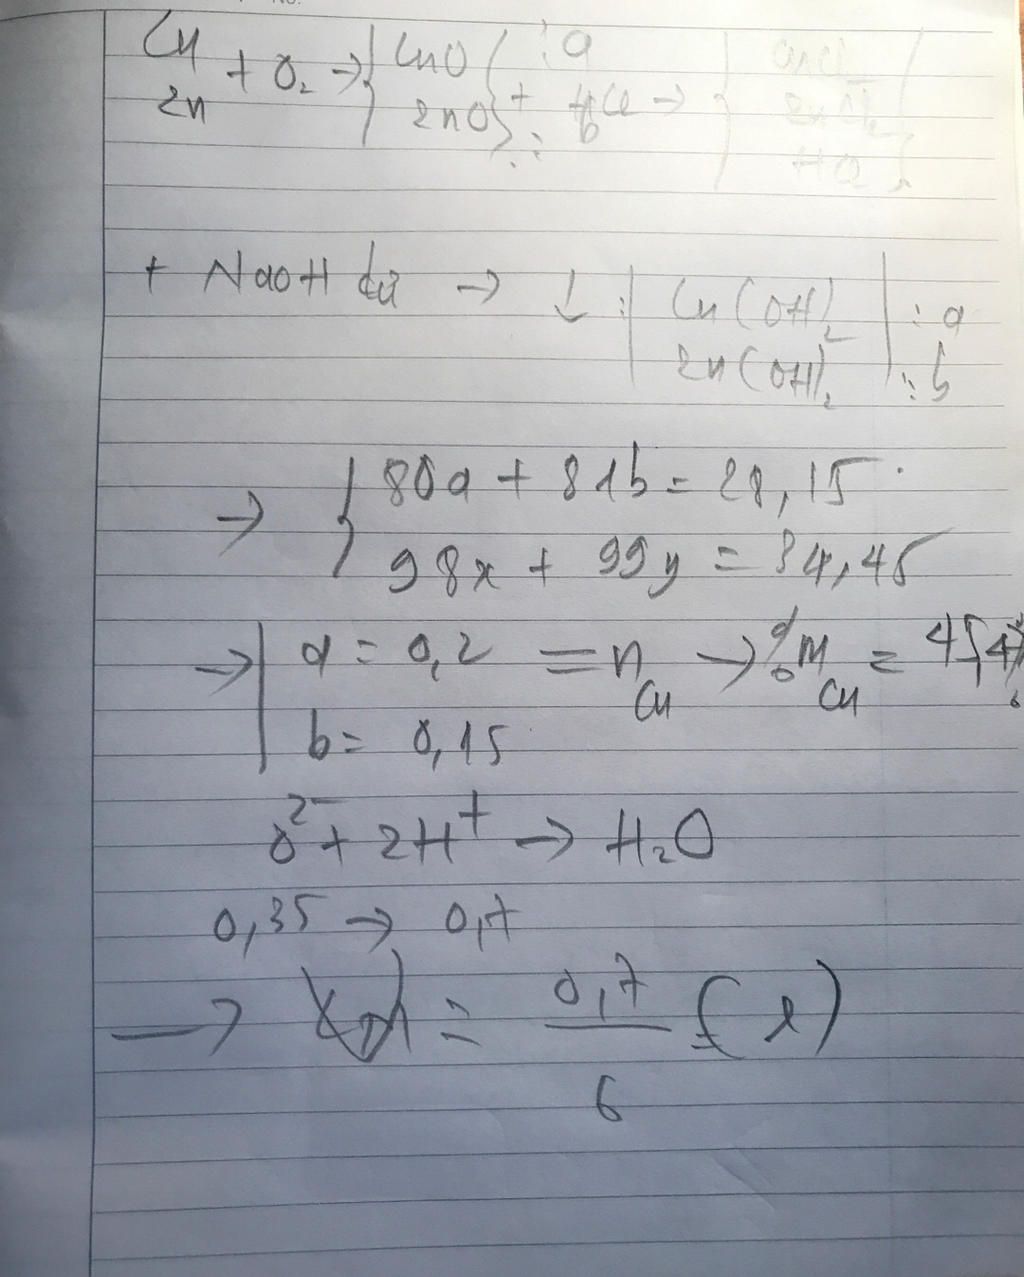 Cu
Zn + O₂ → { CuO : a
ZnO : b } + HCl → { CuCl₂
ZnCl₂
HCl }
+ NaOH dư → ↓ : | Cu(OH)₂ | : a
Zn(OH)₂ : b
→ { 80a + 81b = 28,15
98x + 99y = 34,45
→ | a = 0,2 = nCu → %mCu = 45,4%
b = 0,15
O²⁻ + 2H⁺ → H₂O
0,35 → 0,7
→ = 0,7 / 6 (l)